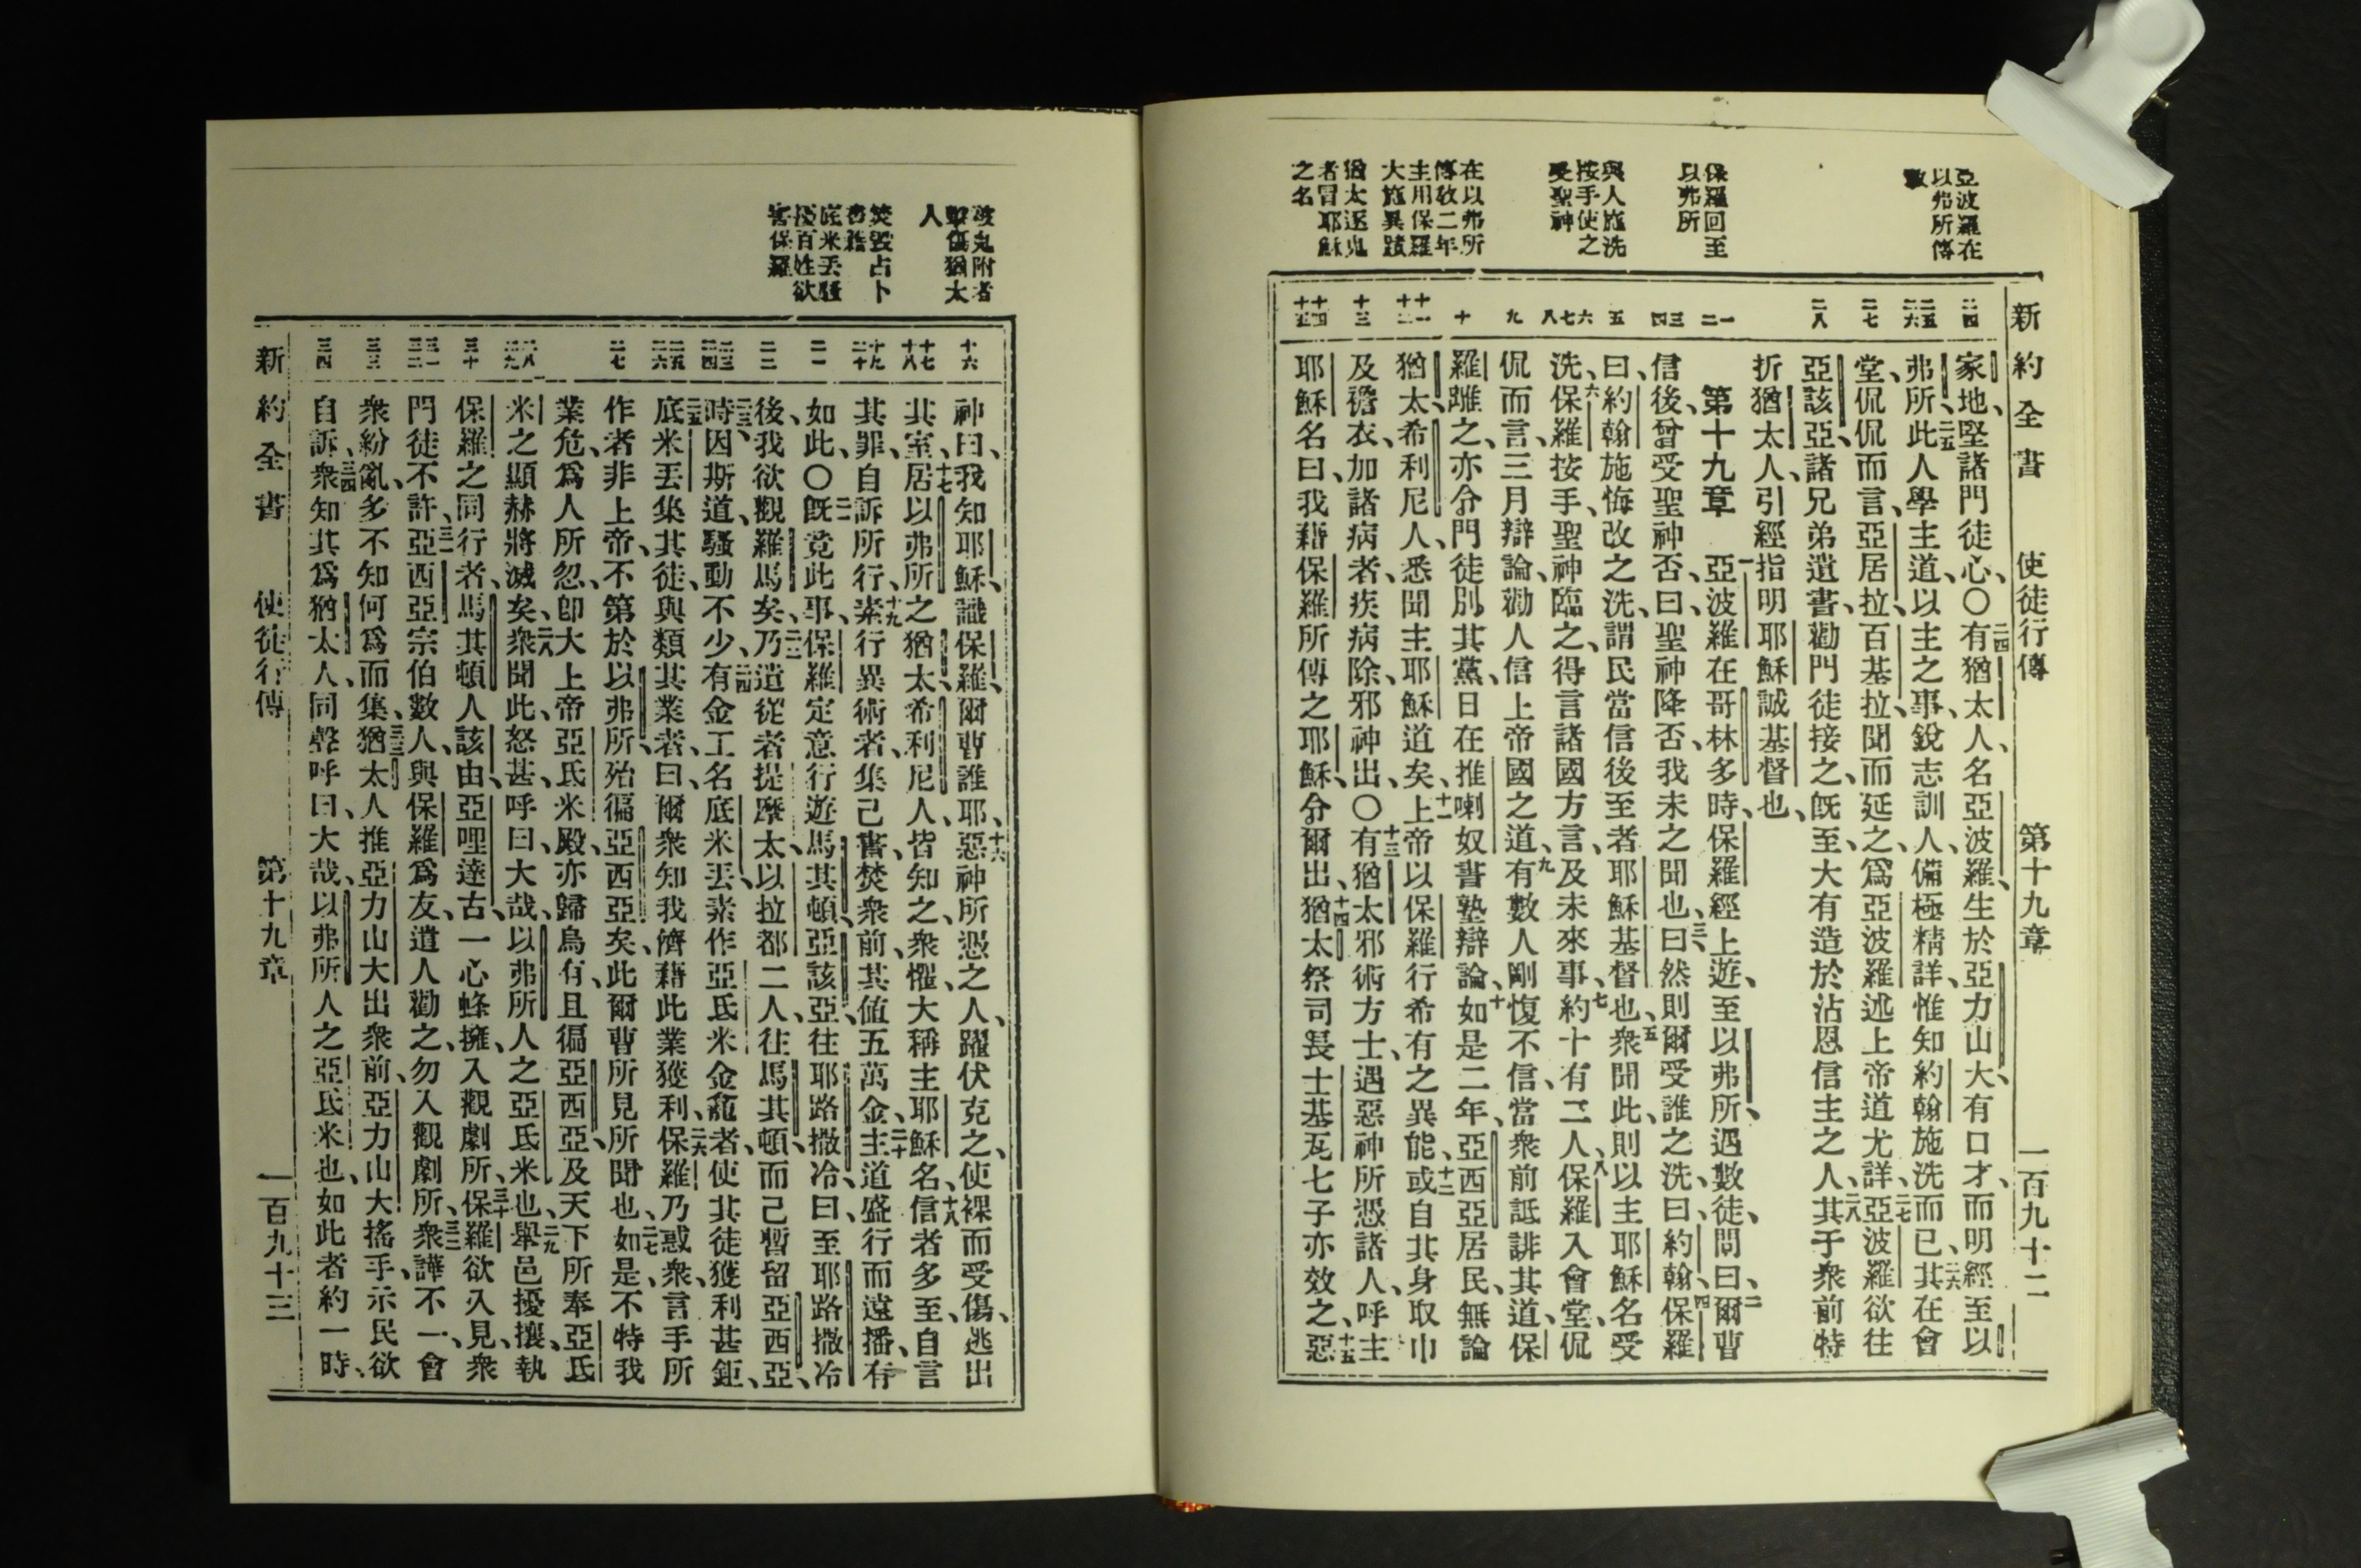 亞波羅在
以弗所傳
教
保羅回至
以弗所
與人施洗
按手使之
受聖神
在以弗所
傳敎二年
主用保羅
大施異蹟
猶太逐鬼
者冒耶穌
之名
新約全書 使徒行傳 第十九章 一百九十二
二四
二五 二六
二七
二八
一 二
三 四
五
六 七 八
九
十
十一 十二
十三
十四 十五
家地、堅諸門徒心、〇二四有猶太人、名亞波羅、生於亞力山大、有口才、而明經、至以
弗所、二五此人學主道、以主之事、銳志訓人、備極精詳、惟知約翰施洗而已、二六其在會
堂、侃侃而言、亞居拉、百基拉、聞而延之、爲亞波羅述上帝道尤詳、二七亞波羅欲往
亞該亞、諸兄弟遺書、勸門徒接之、旣至、大有造於沾恩信主之人、二八其于衆前特
折猶太人、引經指明耶穌誠基督也、
第十九章 一亞波羅在哥林多時、保羅經上遊、至以弗所、遇數徒、問曰、二爾曹
信後、曾受聖神否、曰、聖神降否、我未之聞也、三曰、然則爾受誰之洗、曰、約翰、四保羅
曰、約翰施悔改之洗、謂民當信後至者、耶穌基督也、五衆聞此、則以主耶穌名受
洗、六保羅按手、聖神臨之、得言諸國方言、及未來事、七約十有二人、八保羅入會堂、侃
侃而言、三月辯論、勸人信上帝國之道、九有數人剛愎不信、當衆前詆誹其道、保
羅離之、亦分門徒別其黨、日在推喇奴書塾辯論、十如是二年、亞西亞居民、無論
猶太、希利尼人、悉聞主耶穌道矣、十一上帝以保羅行希有之異能、十二或自其身取巾
及襜衣、加諸病者、疾病除、邪神出、〇十三有猶太邪術方士、遇惡神所憑諸人、呼主
耶穌名曰、我藉保羅所傳之耶穌、命爾出、十四猶太祭司長士基瓦七子亦效之、十五惡
被鬼附者
擊傷猶太
人
焚毀占卜
書籍
底米丟騷
擾百姓欲
害保羅
十六
十七 十八
十九 二十
二一
二二
二三 二四
二五 二六
二七
二八 二九
三十
三一 三二
三三
三四
神曰、我知耶穌、識保羅、爾曹誰耶、十六惡神所憑之人、躍伏克之、使裸而受傷、逃出
其室、十七居以弗所之猶太、希利尼人、皆知之、衆懼、大稱主耶穌名、十八信者多至、自言
其罪、自訴所行、十九素行異術者、集己書、焚衆前、其値五萬金、二十主道盛行而遠播、有
如此、〇二一旣竟此事、保羅定意行遊馬其頓、亞該亞、往耶路撒冷、曰、至耶路撒冷
後、我欲觀羅馬矣、二二乃遣從者提摩太、以拉都二人、往馬其頓、而己暫留亞西亞、
二三時因斯道、騷動不少、二四有金工名底米丟、素作亞氐米金龕者、使其徒獲利甚鉅、
二五底米丟集其徒、與類其業者、曰、爾衆知我儕藉此業獲利、二六保羅乃惑衆、言手所
作者非上帝、不第於以弗所、殆徧亞西亞矣、此爾曹所見所聞也、二七如是、不特我
業危、爲人所忽、卽大上帝亞氐米殿、亦歸烏有、且徧亞西亞、及天下所奉亞氐
米之顯赫將滅矣、二八衆聞此、怒甚、呼曰、大哉、以弗所人之亞氐米也、二九舉邑擾攘、執
保羅之同行者、馬其頓人該由、亞哩達古、一心蜂擁、入觀劇所、三十保羅欲入見衆、
門徒不許、三一亞西亞宗伯數人、與保羅爲友、遣人勸之、勿入觀劇所、三二衆譁不一、會
衆紛亂、多不知何爲而集、三三猶太人推亞力山大出衆前、亞力山大搖手、示民欲
自訴、三四衆知其爲猶太人、同聲呼曰、大哉、以弗所人之亞氐米也、如此者約一時、
新約全書 使徒行傳 第十九章 一百九十三